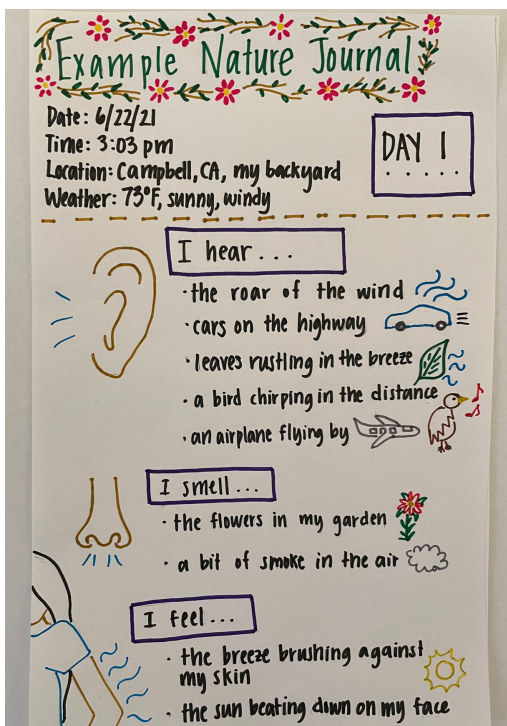 Example Nature Journal
Date: 6/22/21
Time: 3:03 pm
Location: Campbell, CA, my backyard
Weather: 73°F, sunny, windy
DAY 1
I hear...
· the roar of the wind
· cars on the highway
· leaves rustling in the breeze
· a bird chirping in the distance
· an airplane flying by
I smell...
· the flowers in my garden
· a bit of smoke in the air
I feel...
· the breeze brushing against
my skin
· the sun beating down on my face